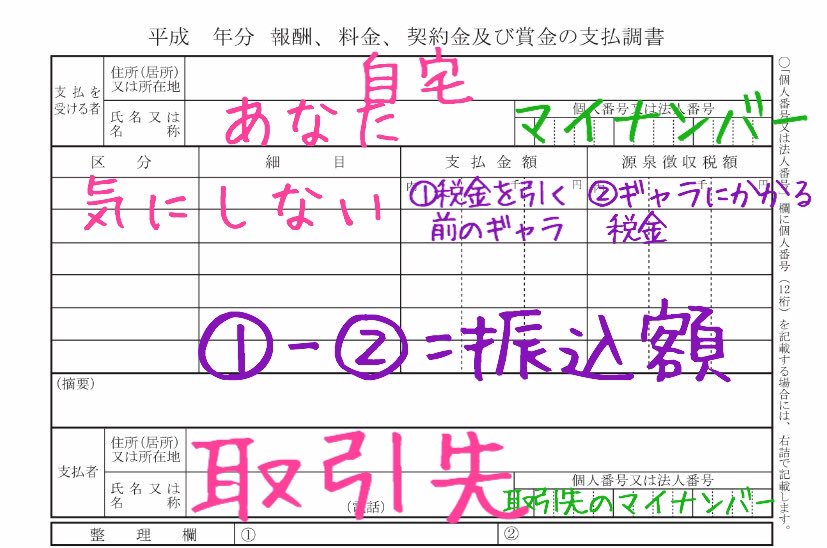 平成　年分 報酬、料金、契約金及び賞金の支払調書
支払を
受ける者
住所(居所)
又は所在地
自宅
氏名又は
名称
あなた
個人番号又は法人番号
マイナンバー
区分
細目
支払金額
源泉徴収税額
気にしない
内
千
円
内
千
円
①税金を引く
前のギャラ
②ギャラにかかる
税金
①-②=振込額
(摘要)
支払者
住所(居所)
又は所在地
氏名又は
名称
取引先
(電話)
個人番号又は法人番号
取引先のマイナンバー
整理欄
①
②
○「個人番号又は法人番号」欄に個人番号(12桁)を記載する場合には、右詰で記載します。